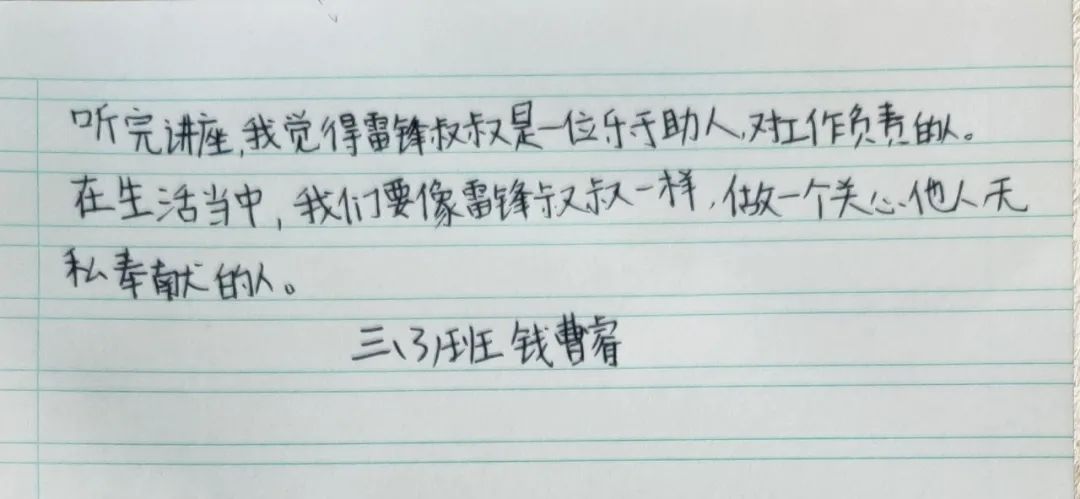 听完讲座,我觉得雷锋叔叔是一位乐于助人,对工作负责的人。
在生活当中,我们要像雷锋叔叔一样,做一个关心他人无
私奉献的人。
三(3)班 钱曹睿